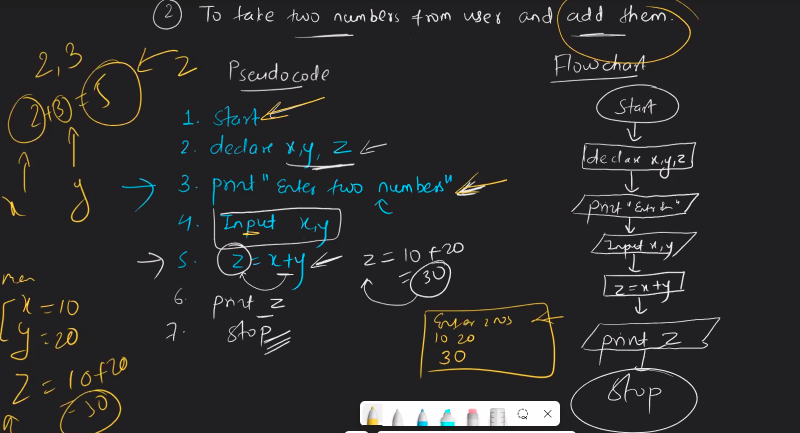 2 To take two numbers from user and add them.
2,3
2+3=5
z
x
y
Pseudocode
1. start
2. declare x,y, z
3. print "Enter two numbers"
4. Input x,y
5. z = x+y
6. print z
7. stop
z = 10+20
= 30
Enter 2 nos
10 20
30
x = 10
y = 20
z = 10+20
= 30
Flowchart
Start
declare x,y,z
Input x,y
z=x+y
print z
Stop